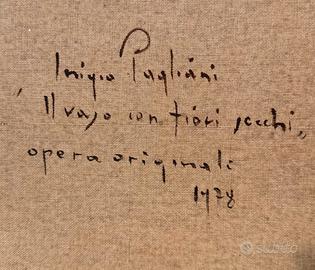 Inigio Pagliani
"Il vaso con fiori secchi"
opera originale
1978
subito